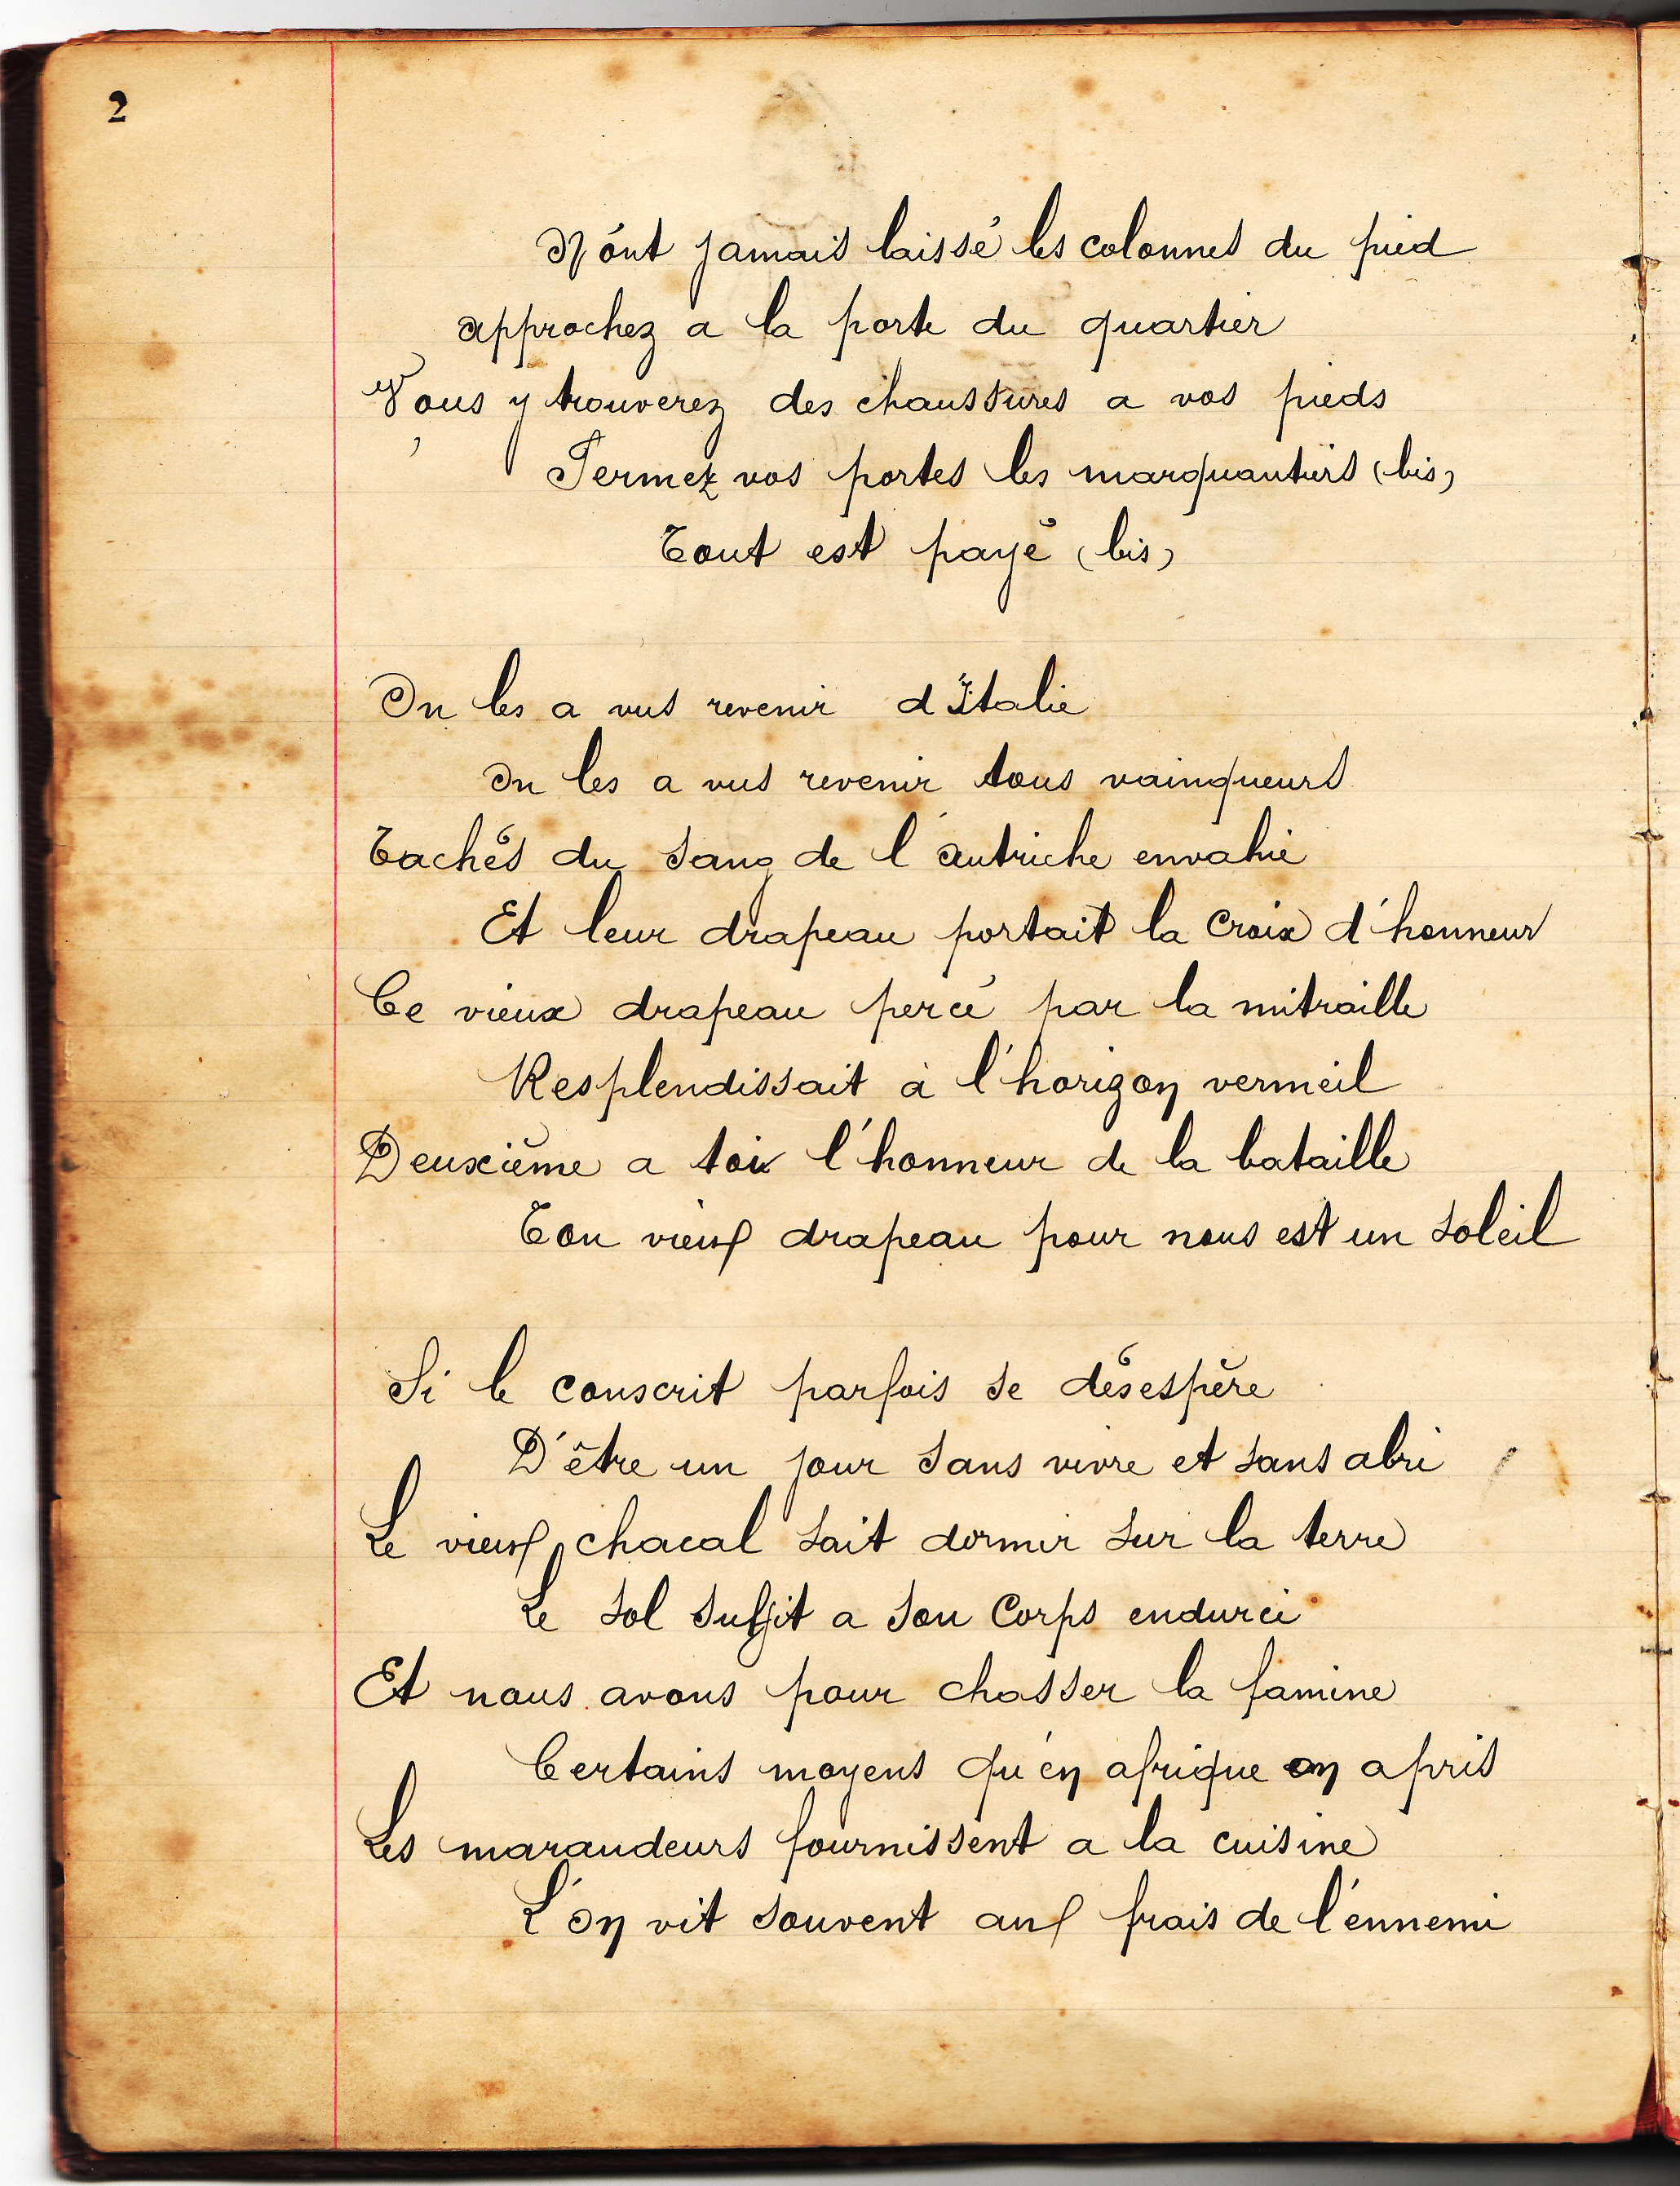 2
N'ont jamais laissé les colonnes du pied
approchez a la porte du quartier
Vous y trouverez des chaussures a vos pieds
Fermez vos portes les marquantiers (bis)
Tout est payé (bis)
On les a vus revenir d'Italie
On les a vus revenir tous vainqueurs
Tachés du sang de l'autriche envahie
Et leur drapeau portait la Croix d'honneur
Ce vieux drapeau percé par la mitraille
Resplendissait à l'horizon vermeil
Deuxième a toi l'honneur de la bataille
Ton vieux drapeau pour nous est un soleil
Si le conscrit parfois se désespère
D'être un jour sans vivre et sans abri
Le vieux chacal sait dormir sur la terre
Le sol suffit a son Corps endurci
Et nous avons pour chasser la famine
Certains moyens qu'en afrique on apris
Les maraudeurs fournissent a la cuisine
L'on vit souvent aux frais de l'ennemi